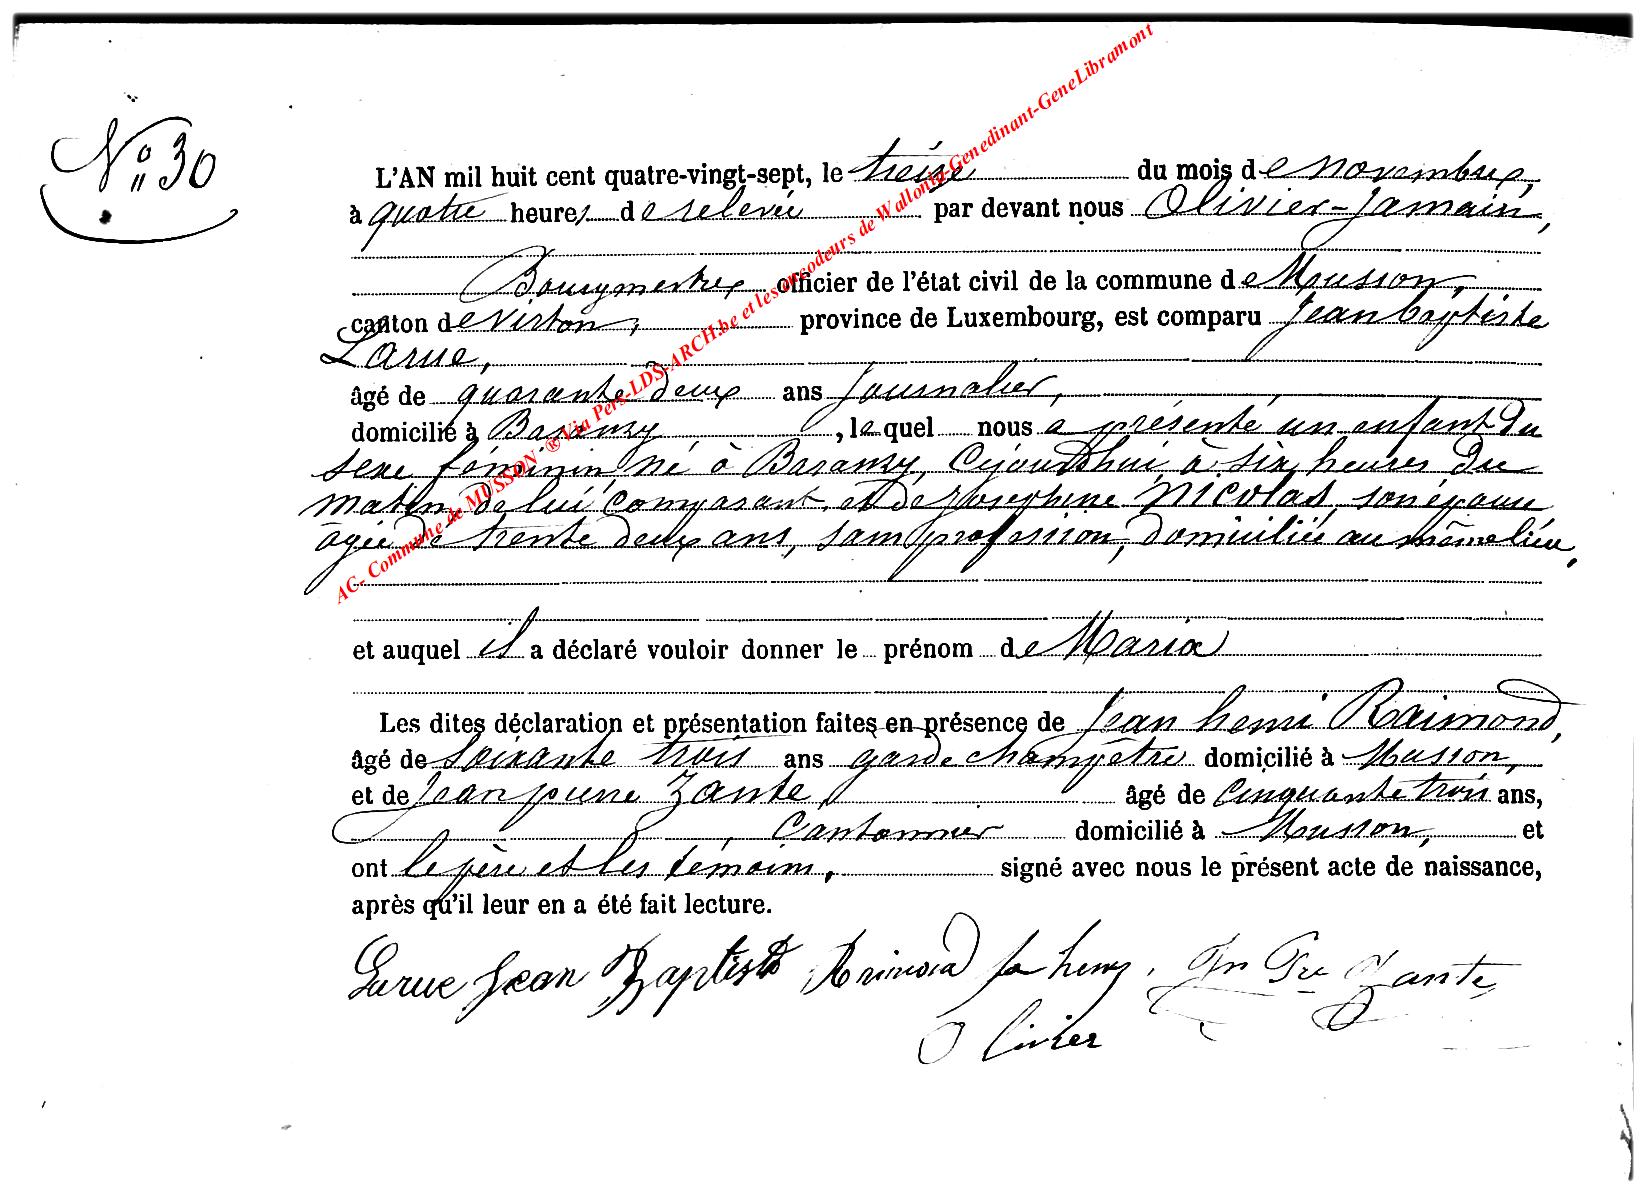 N° 30
L'AN mil huit cent quatre-vingt-sept, le treize du mois de novembre,
à quatre heures de relevée par devant nous Olivier-Jamain,
Bourgmestre officier de l'état civil de la commune de Musson,
canton de Virton, province de Luxembourg, est comparu Jean baptiste
Larue,
âgé de quarante deux ans Journalier,
domicilié à Baranzy, lequel nous a présenté un enfant du
sexe féminin né à Baranzy, Cejourd'hui à six heures du
matin, de lui comparant et de Josephine Nicolas, son épouse
âgée de trente deux ans, sans profession, domiciliée au même lieu.
et auquel il a déclaré vouloir donner le prénom de Maria
Les dites déclaration et présentation faites en présence de Jean henri Raimond,
âgé de soixante trois ans garde champêtre domicilié à Musson,
et de Jean pierre Zante, âgé de Cinquante trois ans,
Cantonnier domicilié à Musson, et
ont le père et les témoins, signé avec nous le présent acte de naissance,
après qu'il leur en a été fait lecture.
Larue Jean Baptiste Raimond Jn henry. Jn Pre Zante
Olivier
AC- Commune de MUSSON-®Via Pers-LDS-ARCH.be et les encodeurs de Wallonia-Genedinant-GeneLibramont